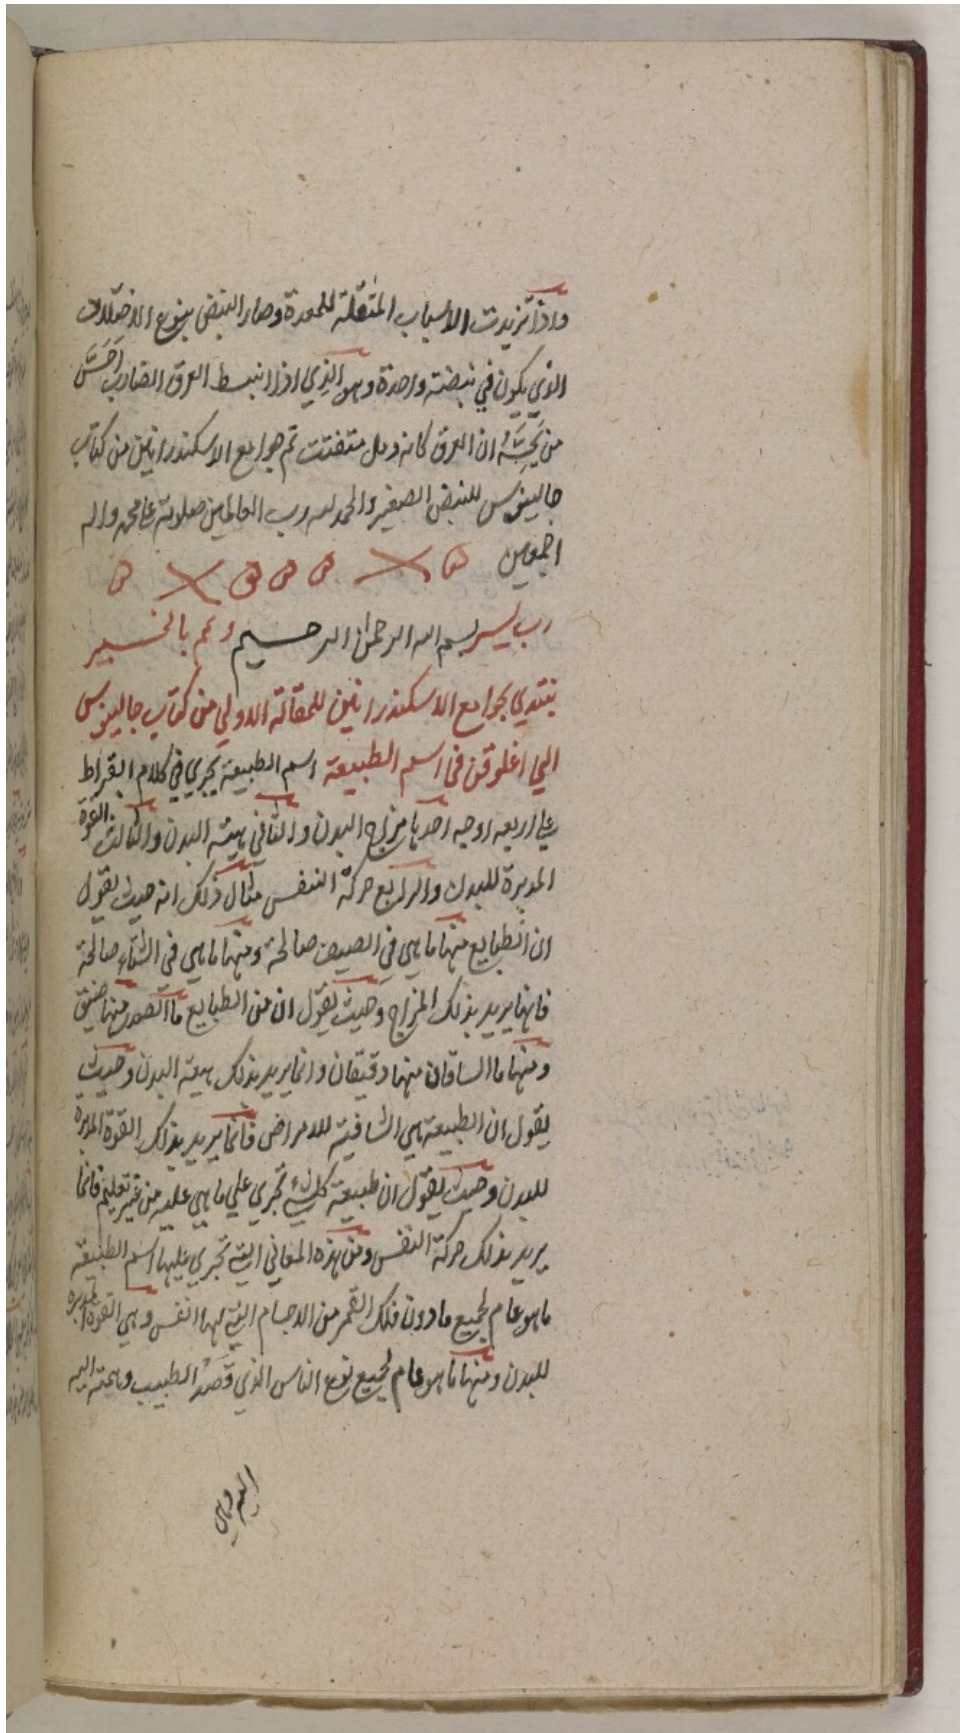 واذا تزيدت الاسباب المثقلة للمعدة وصار النبض بنوع الاختلاف
الذي يكون في نبضة واحدة وهو الذي اذا انبسط العرق الضارب احسّ
من يجسّه ان العرق كانه رمل متفتت تم جوامع الاسكندرانيين من كتاب
جالينوس للنبض الصغير والحمد لله رب العالمين صلوته على محمد واله
اجمعين
رب يسر بسم الله الرحمن الرحيم وتمم بالخير
نبتدي بجوامع الاسكندرانيين للمقالة الاولي من كتاب جالينوس
الي اغلوقن في اسم الطبيعة اسم الطبيعة يجري في كلام ابقراط
علي اربعه اوجه احدها مزاج البدن والثاني هيئة البدن والثالث القوة
المدبرة للبدن والرابع حركة النفس مثال ذلك انه حيث يقول
ان الطبايع منها ما هي في الصيف صالحة ومنها ما هي في الشتاء صالحة
فانها يريد بذلك المزاج وحيث يقول ان من الطبايع ما الصدر منها ضيق
ومنها ما الساقان منها دقيقان وانما يريد بذلك هيئة البدن وحيث
يقول ان الطبيعة هي الشافية للامراض فانما يريد بذلك القوة المدبرة
للبدن وحيث يقول ان طبيعة كل شيء تجري علي ما هي عليه من غير تعليم فانما
يريد بذلك حركة النفس ومن هذه المعاني التي تجري عليها اسم الطبيعة
ما هو عام لجميع ما دون فلك القمر من الاجسام التي لها انفس وهي القوة المدبرة
للبدن ومنها ما هو عام لجميع نوع الناس الذي قصد الطبيب وهمته اليه
اليه وهي